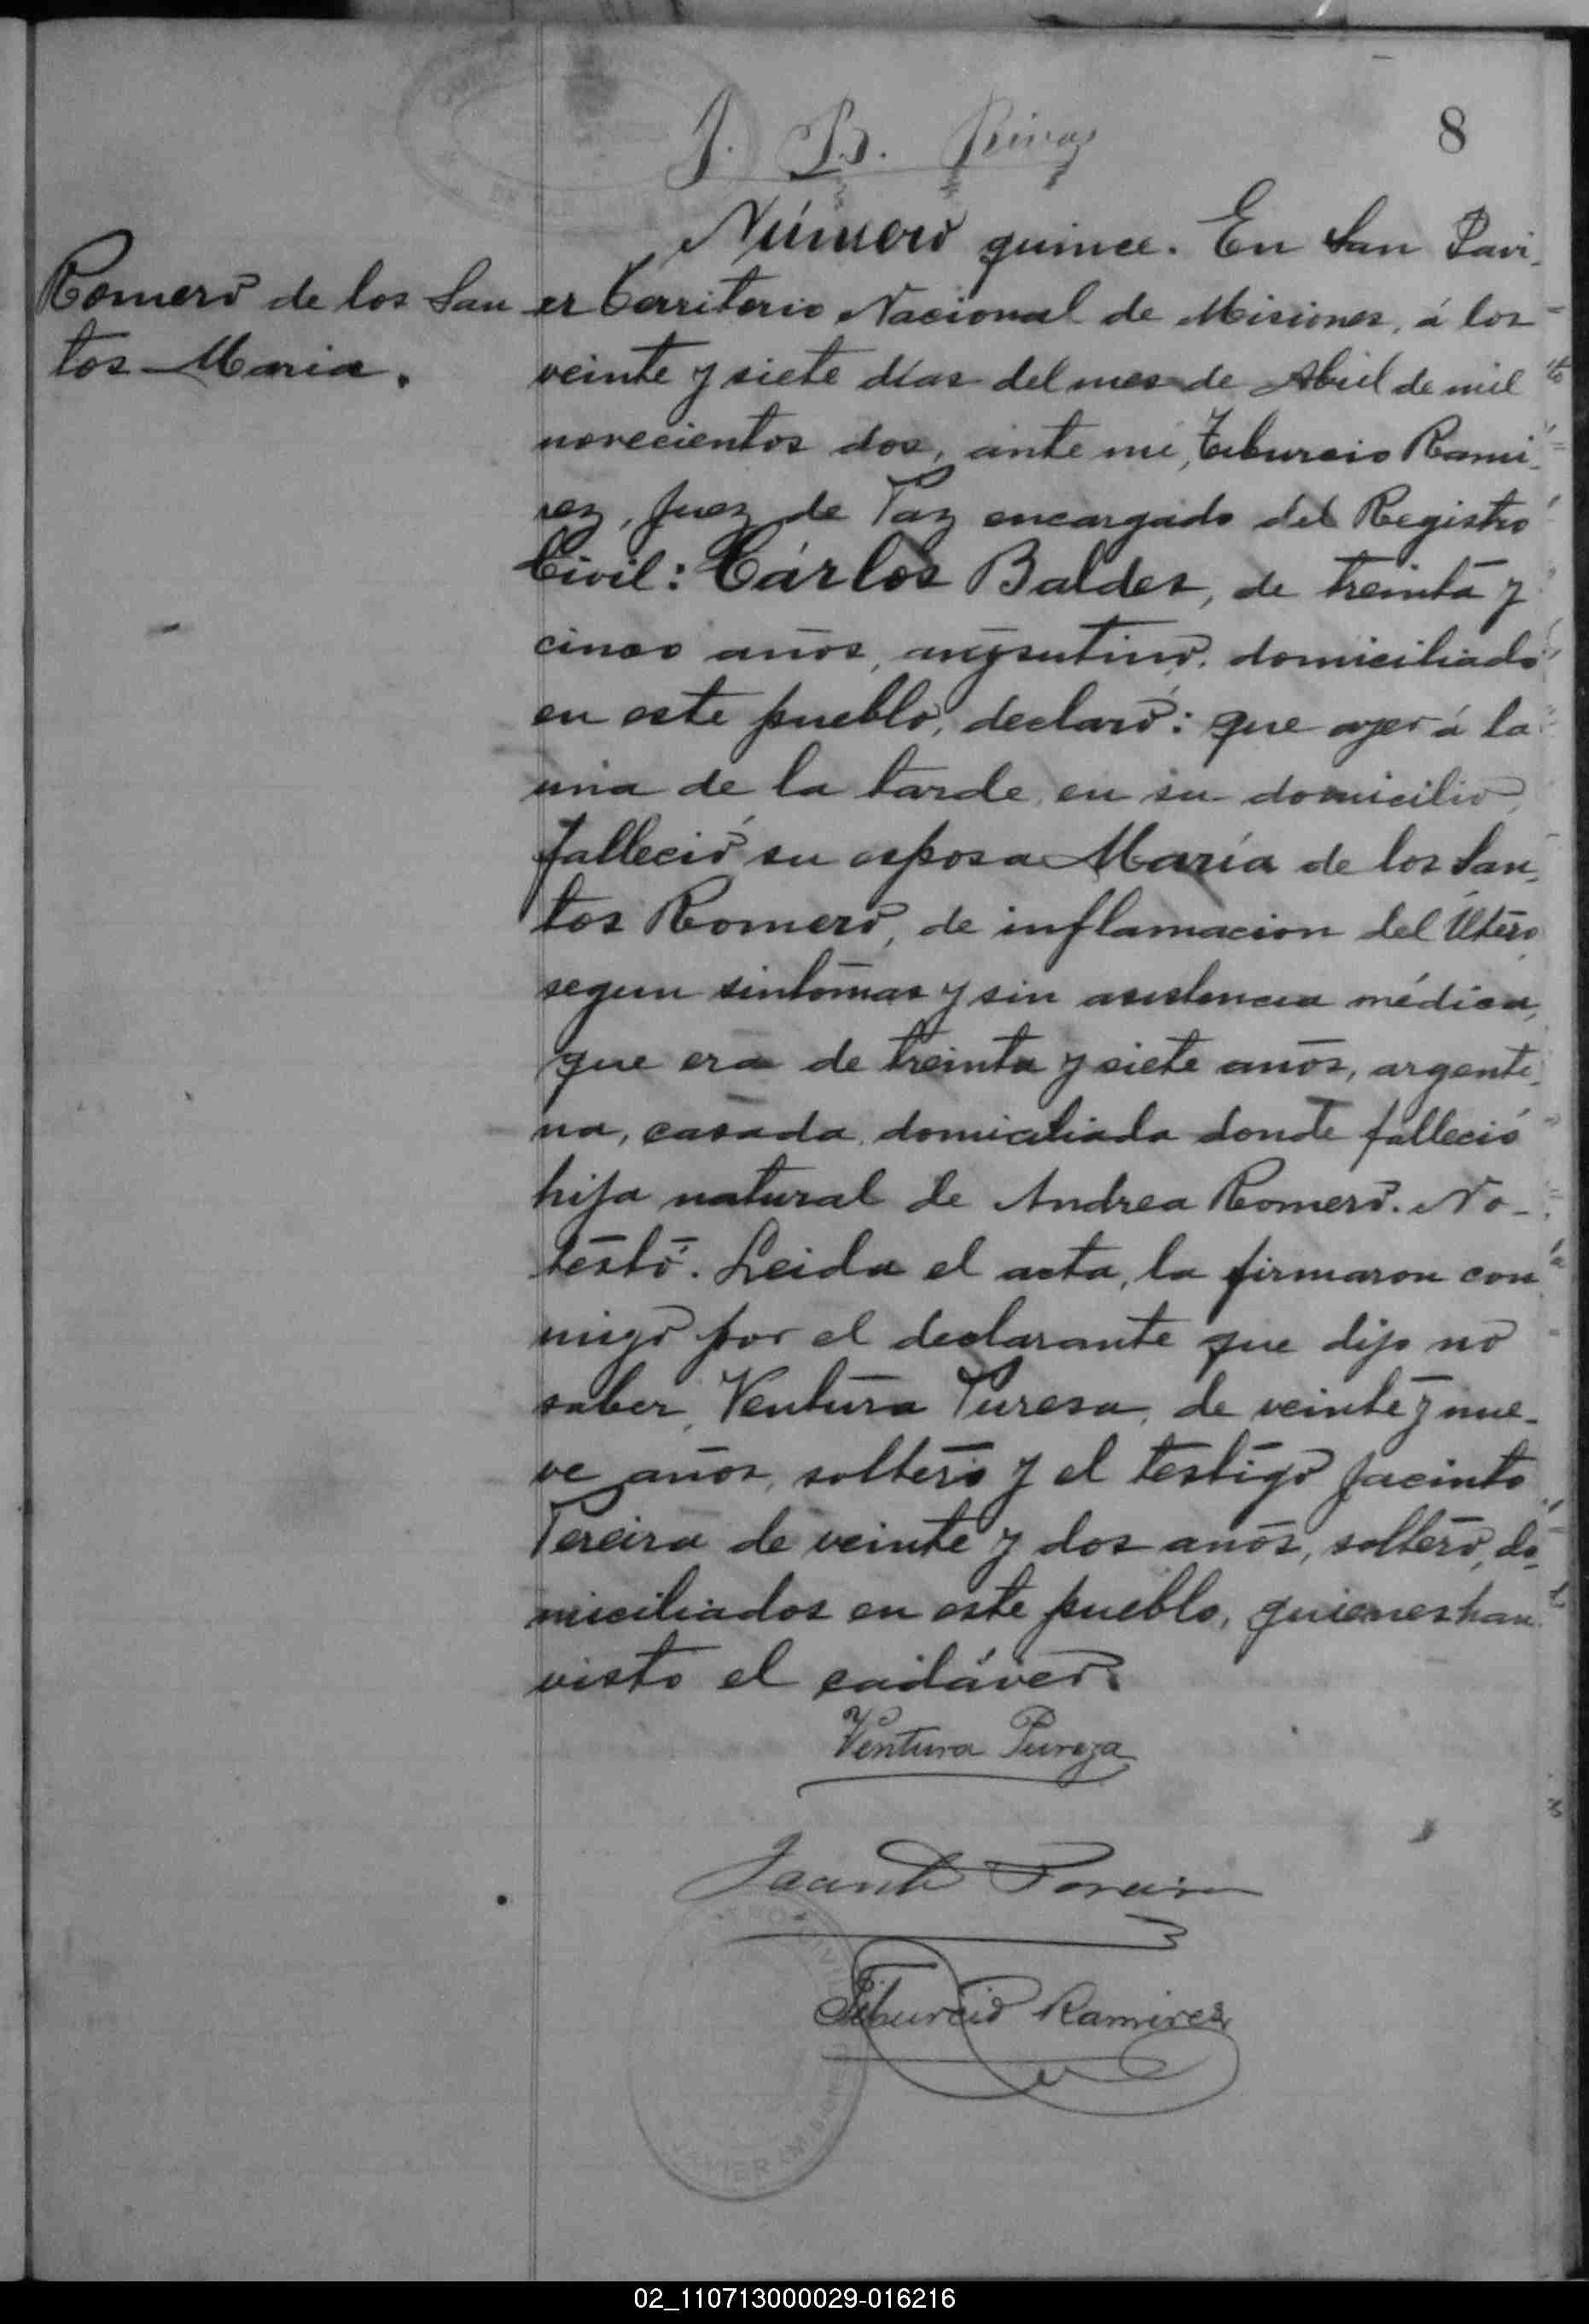 8
J. B. Rivas
Romero de los San
tos Maria.
Número quince. En San Javi-
er Territorio Nacional de Misiones, á los
veinte y siete días del mes de Abril de mil
novecientos dos, ante mi, Tiburcio Rami-
rez, Juez de Paz encargado del Registro
Civil: Cárlos Baldes, de treinta y
cinco años, argentino, domiciliado
en este pueblo, declaró: que ayer á la
una de la tarde, en su domicilio,
falleció su esposa María de los San-
tos Romero, de inflamacion del Utero
segun sintomas y sin asistencia médica,
que era de treinta y siete años, argenti-
na, casada, domiciliada donde falleció
hija natural de Andrea Romero. No-
testó. Leida el acta, la firmaron con
migo por el declarante que dijo no
saber, Ventura Puresa, de veinte y nue-
ve años, soltero y el testigo Jacinto
Pereira de veinte y dos años, soltero, do-
miciliados en este pueblo, quienes han
visto el cadáver.
Ventura Pureza
Jacinto Pereira
Tiburcio Ramirez
02_110713000029-016216